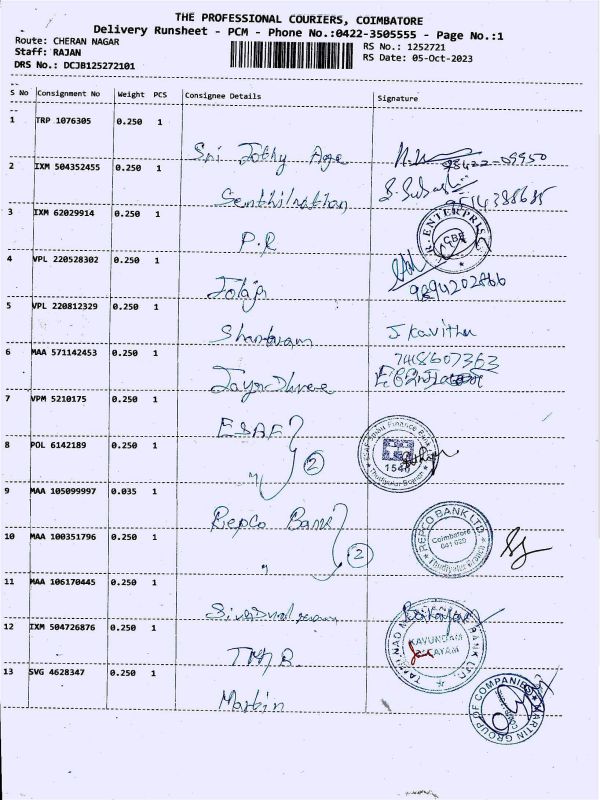 THE PROFESSIONAL COURIERS, COIMBATORE
Delivery Runsheet - PCM - Phone No.:0422-3505555 - Page No.:1
Route: CHERAN NAGAR
RS No.: 1252721
Staff: RAJAN
RS Date: 05-Oct-2023
DRS No.: DCJB125272101
S No Consignment No Weight PCS Consignee Details Signature
1 TRP 1076305 0.250 1
Sri Jothy Age 98422-09950
2 IXM 504352455 0.250 1
Senthilnathan
3 IXM 62029914 0.250 1
P.R
R. ENTERPRISES CBE
4 VPL 220528302 0.250 1
9894202866
5 VPL 220812329 0.250 1
Shantaram J. Kavitha
6 MAA 571142453 0.250 1
7418607363
7 VPM 5210175 0.250 1
ESAF
8 POL 6142189 0.250 1
" 2
ESAF Small Finance Bank 1540
9 MAA 105099997 0.035 1
Repco Bank
10 MAA 100351796 0.250 1
" 2
REPCO BANK LTD. Coimbatore 641 029
11 MAA 106170445 0.250 1
12 IXM 504726876 0.250 1
TMB
TAMILNAD BANK LTD. KAVUNDAM
13 SVG 4628347 0.250 1
Martin
MARTIN GROUP OF COMPANIES